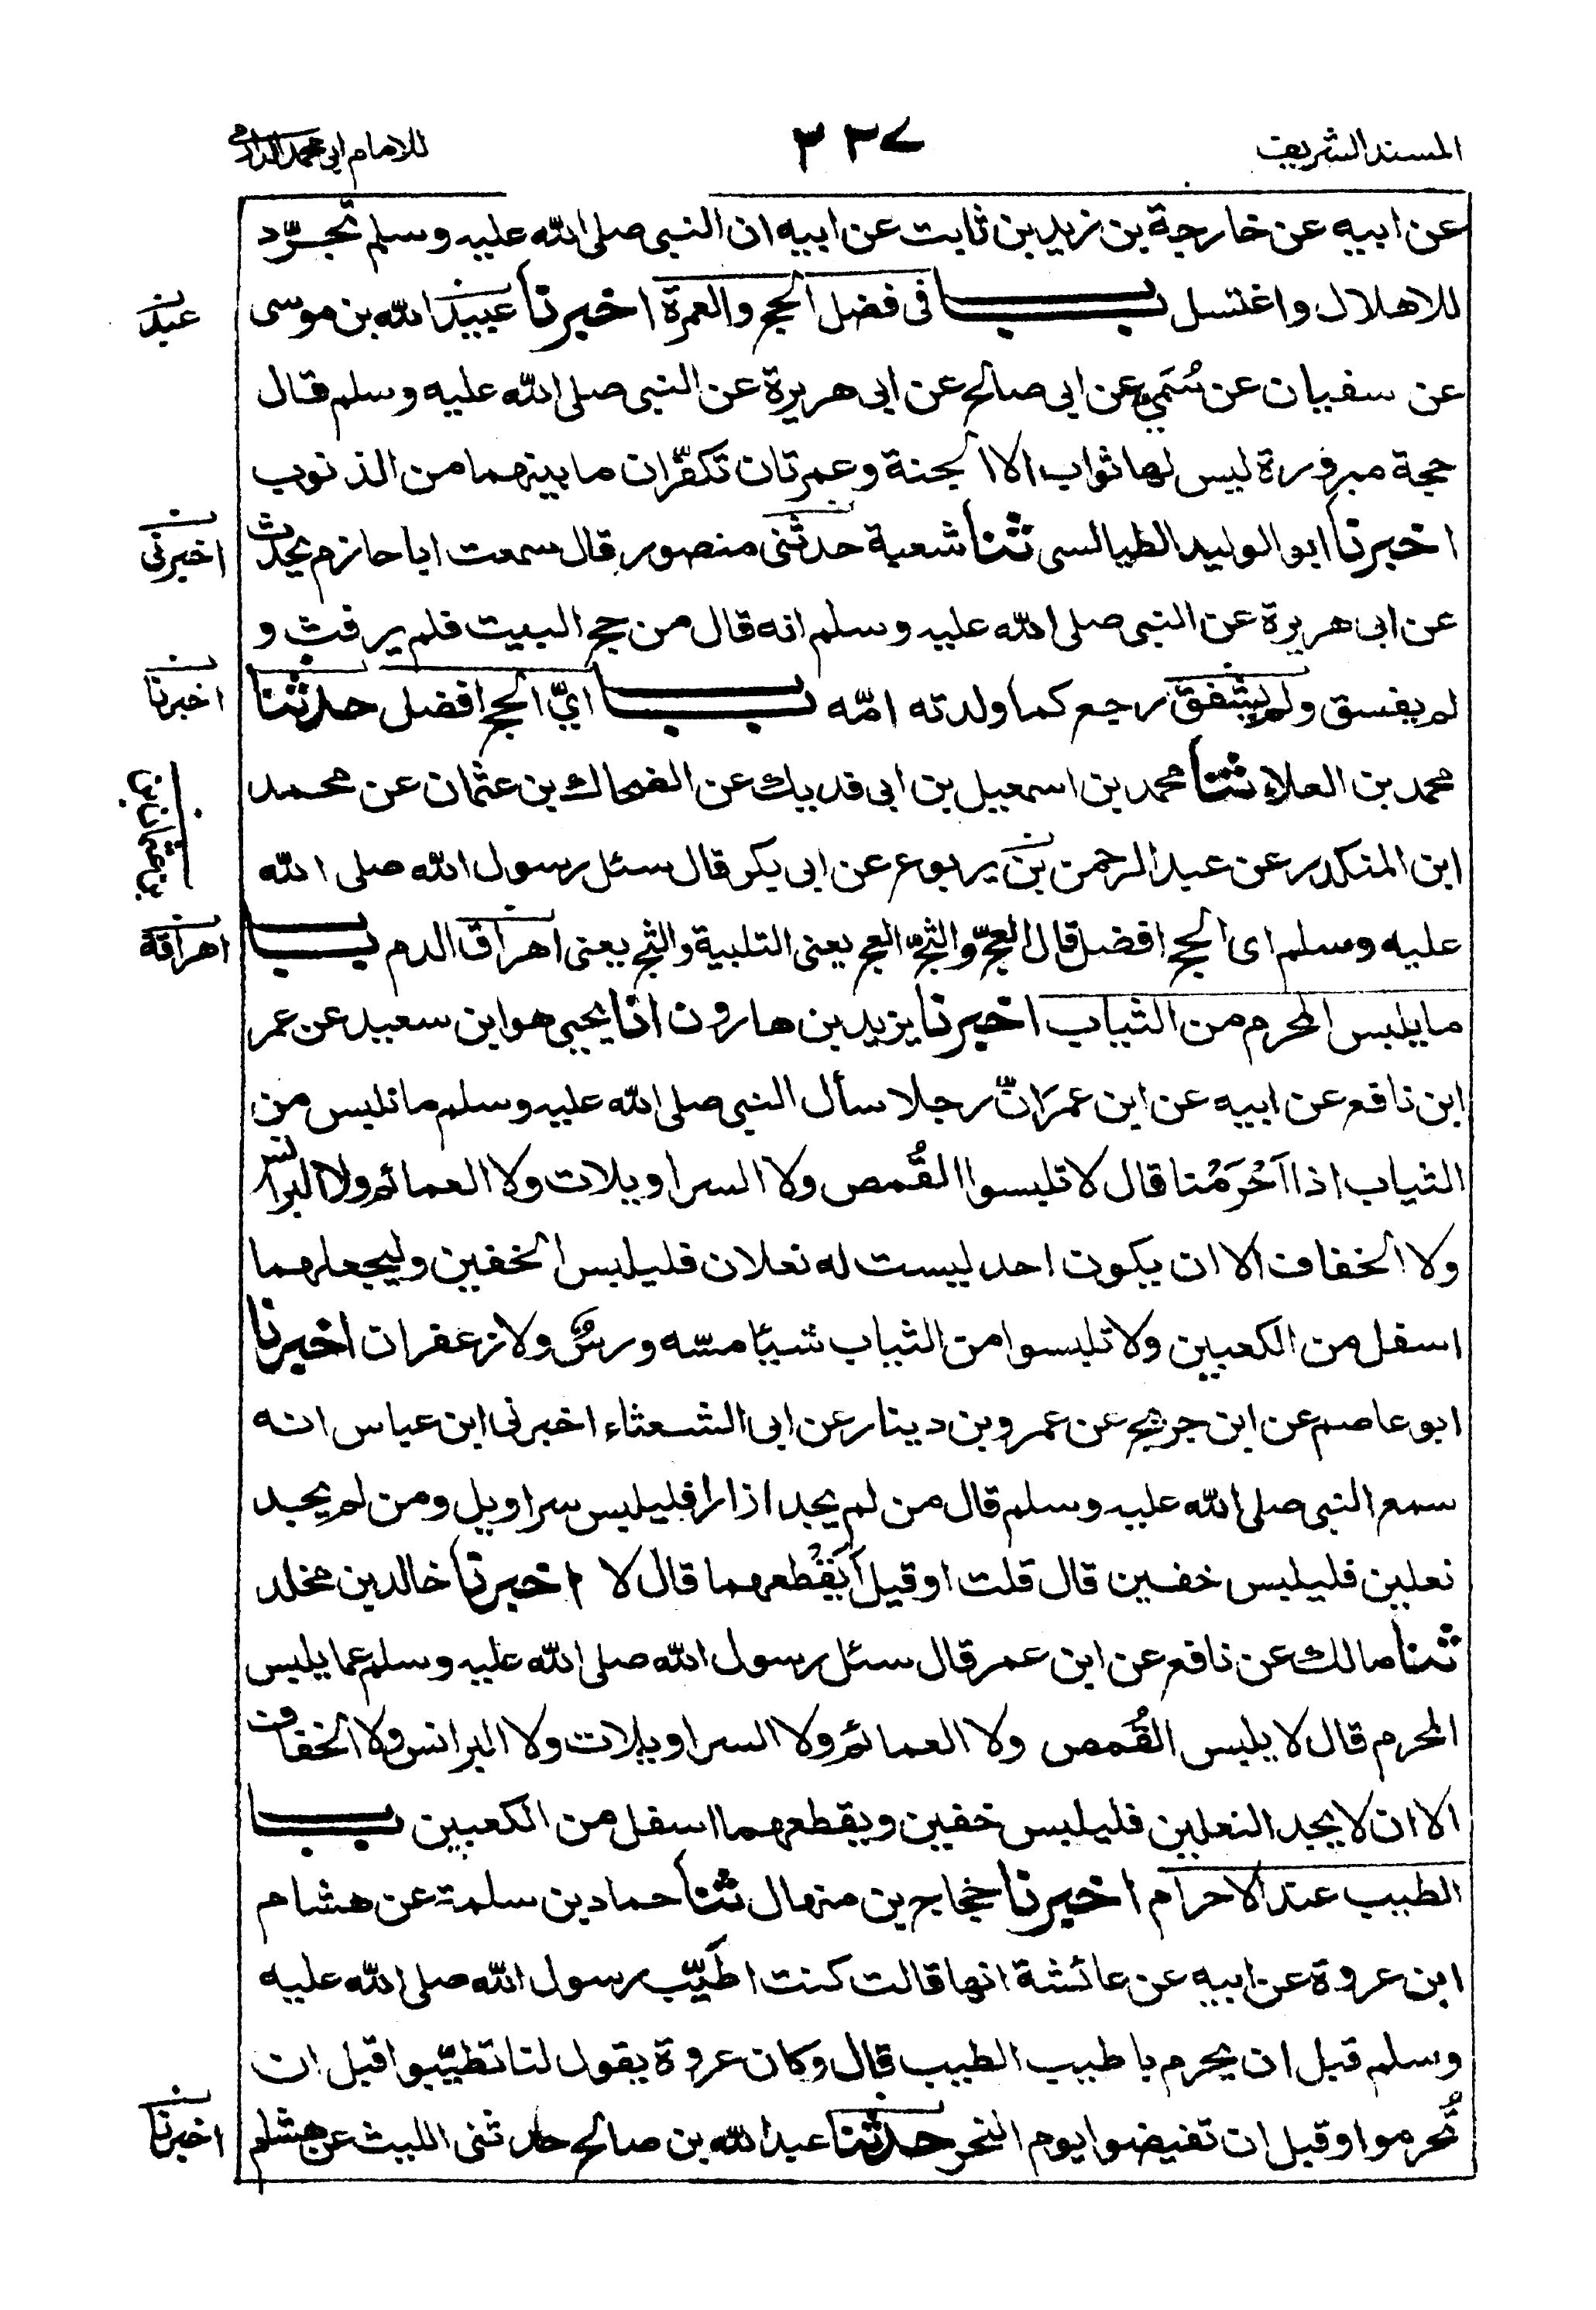 المسند الشريف
٣٢٧
للامام ابي محمد الدارمي
عن ابيه عن خارجة بن زيد بن ثابت عن ابيه ان النبي صلى الله عليه وسلم تجرّد
للاهلال واغتسل باب في فضل الحج والعمرة اخبرنا عبيد الله بن موسى
عبد
عن سفيان عن سُمَيّ عن ابي صالح عن ابي هريرة عن النبي صلى الله عليه وسلم قال
حجة مبرورة ليس لها ثواب الا الجنة وعمرتان تكفّران ما بينهما من الذنوب
اخبرنا ابو الوليد الطيالسي ثنا شعبة حدثني منصور قال سمعت ابا حازم يحدث
اخبرني
عن ابي هريرة عن النبي صلى الله عليه وسلم انه قال من حج البيت فلم يرفث و
لم يفسق رجع كما ولدته امّه باب ايّ الحج افضل حدثنا
اخبرنا
محمد بن العلاء ثنا محمد بن اسمعيل بن ابي فديك عن الضحاك بن عثمان عن محمد
بن عثمان بن
ابن المنكدر عن عبد الرحمن بن يربوع عن ابي بكر قال سئل رسول الله صلى الله
عليه وسلم اى الحج افضل قال العجّ والثجّ العج يعني التلبية والثج يعني اهراق الدم باب
اهراقة
ما يلبس المحرم من الثياب اخبرنا يزيد بن هارون انا يحيى هو ابن سعيد عن عمر
ابن نافع عن ابيه عن ابن عمر انّ رجلا سأل النبي صلى الله عليه وسلم ما نلبس من
الثياب اذا اَحْرَمْنا قال لا تلبسوا القُمص ولا السراويلات ولا العمائم ولا البرانس
ولا الخفاف الا ان يكون احد ليست له نعلان فليلبس الخفين وليجعلهما
اسفل من الكعبين ولا تلبسوا من الثياب شيئا مسّه ورسٌ ولا زعفران اخبرنا
ابو عاصم عن ابن جريج عن عمرو بن دينار عن ابي الشعثاء اخبرني ابن عباس انه
سمع النبي صلى الله عليه وسلم قال من لم يجد ازارا فليلبس سراويل ومن لم يجد
نعلين فليلبس خفين قال قلت او قيل اَيَقْطعهما قال لا اخبرنا خالد بن مخلد
ثنا مالك عن نافع عن ابن عمر قال سئل رسول الله صلى الله عليه وسلم عما يلبس
المحرم قال لا يلبس القُمص ولا العمائم ولا السراويلات ولا البرانس ولا الخفاف
الا ان لا يجد النعلين فليلبس خفين ويقطعهما اسفل من الكعبين باب
الطيب عند الاحرام اخبرنا حجاج بن منهال ثنا حماد بن سلمة عن هشام
ابن عروة عن ابيه عن عائشة انها قالت كنت اطَيّب رسول الله صلى الله عليه
وسلم قبل ان يحرم باطيب الطيب قال وكان عروة يقول لنا تطيّبوا قبل ان
تُحرموا وقبل ان تفيضوا يوم النحر حدثنا عبد الله بن صالح حدثني الليث عن هشام
اخبرنا